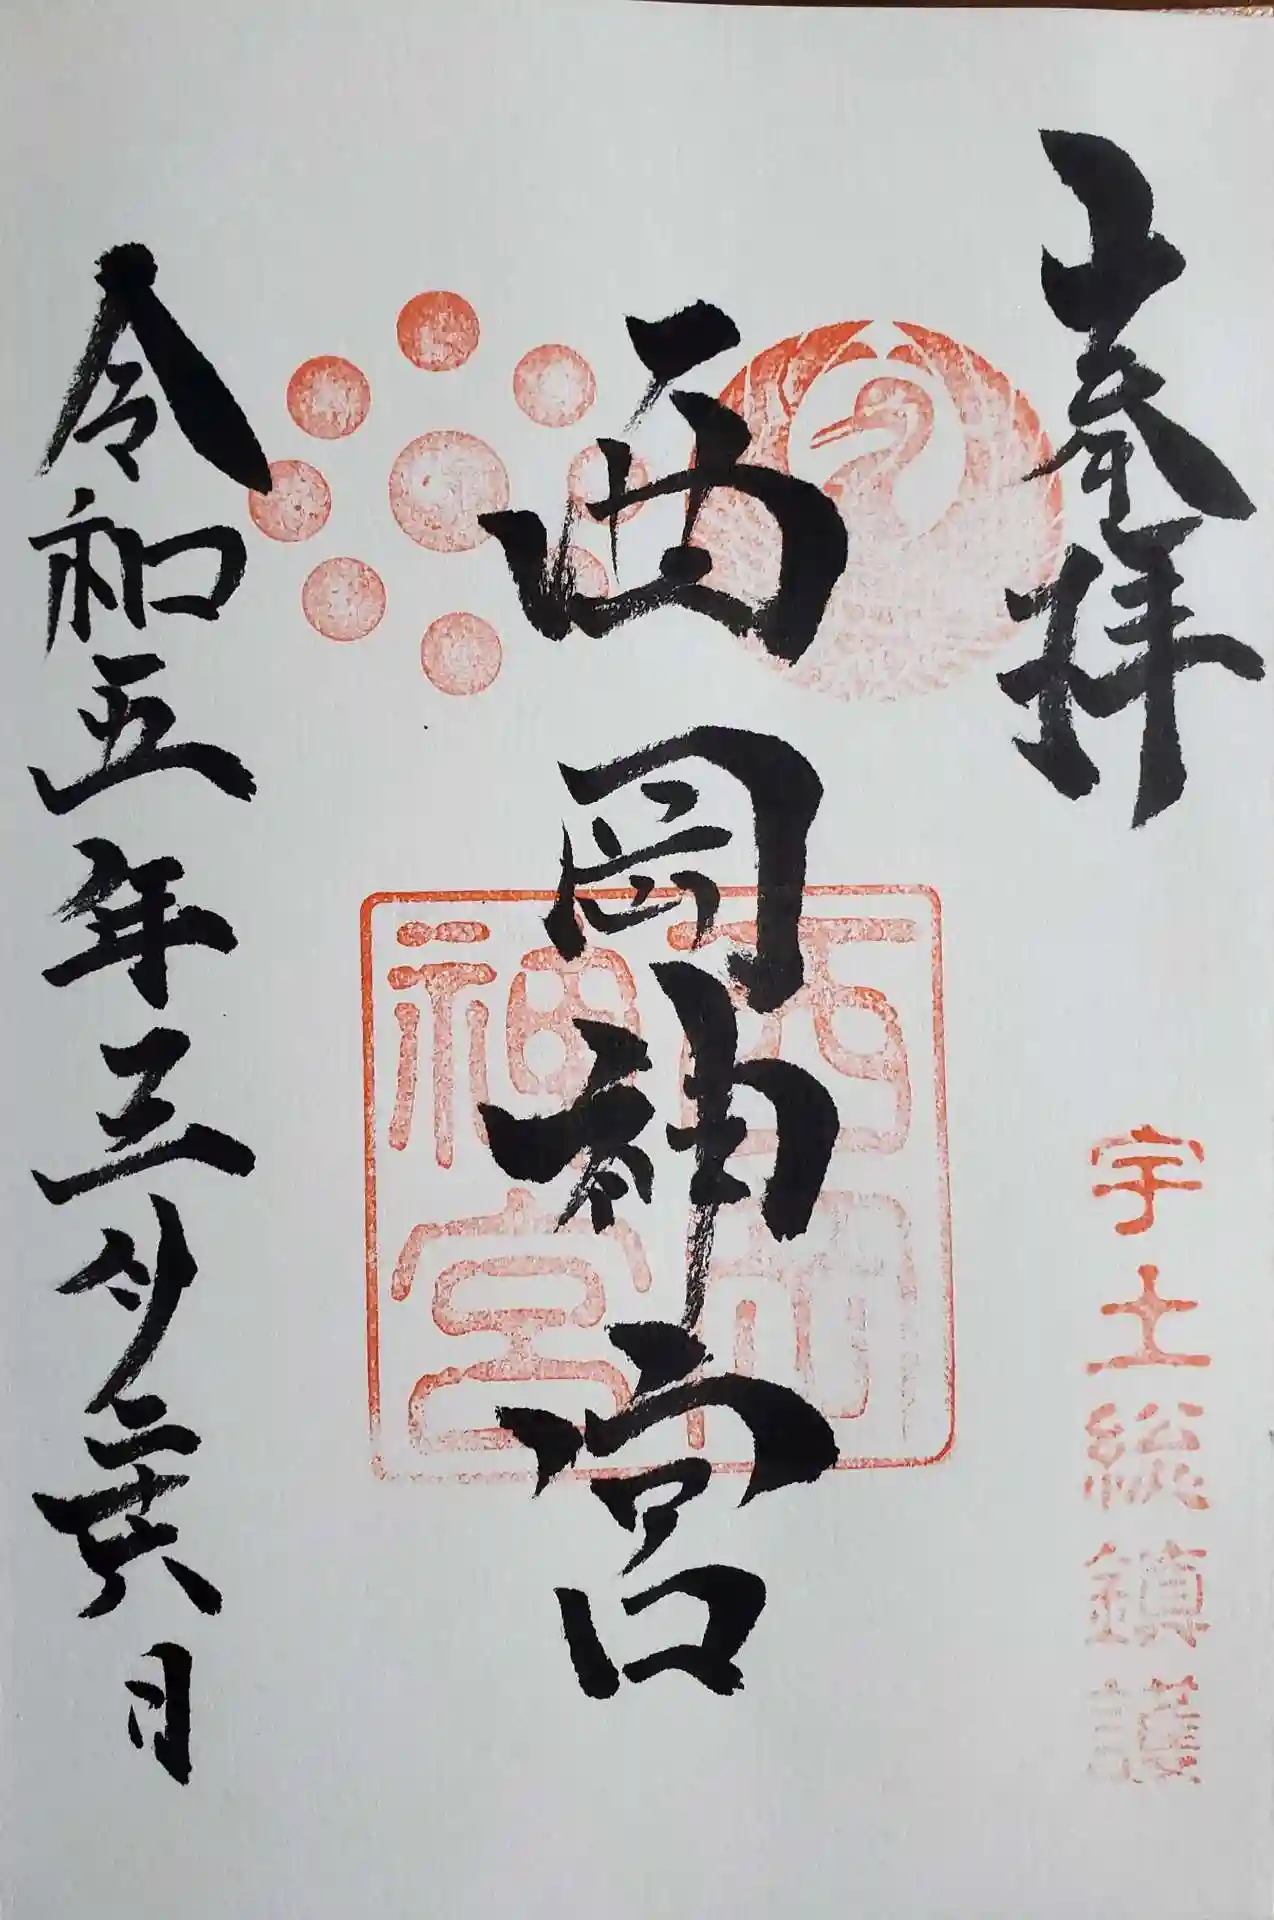 奉拝
宇土総鎮護
西岡神宮
西岡
神宮
令和五年三月二十六日